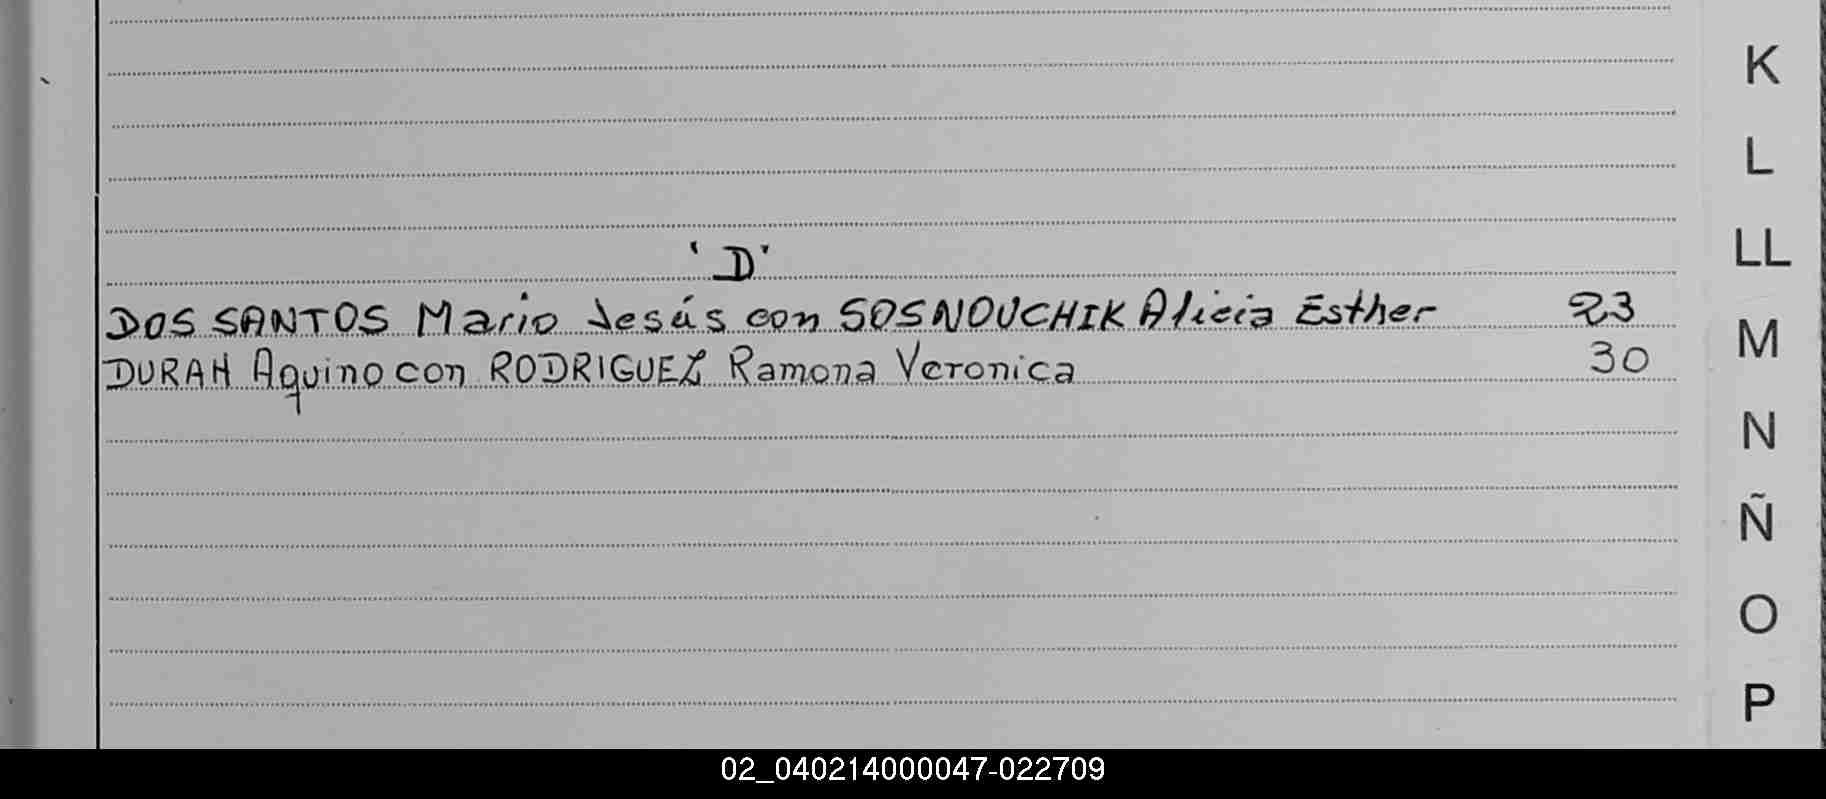 'D'
DOS SANTOS Mario Jesús con SOSNOUCHIK Alicia Esther 23
DURAN Aquino con RODRIGUEZ Ramona Veronica 30
K
L
LL
M
N
Ñ
O
P
02_040214000047-022709